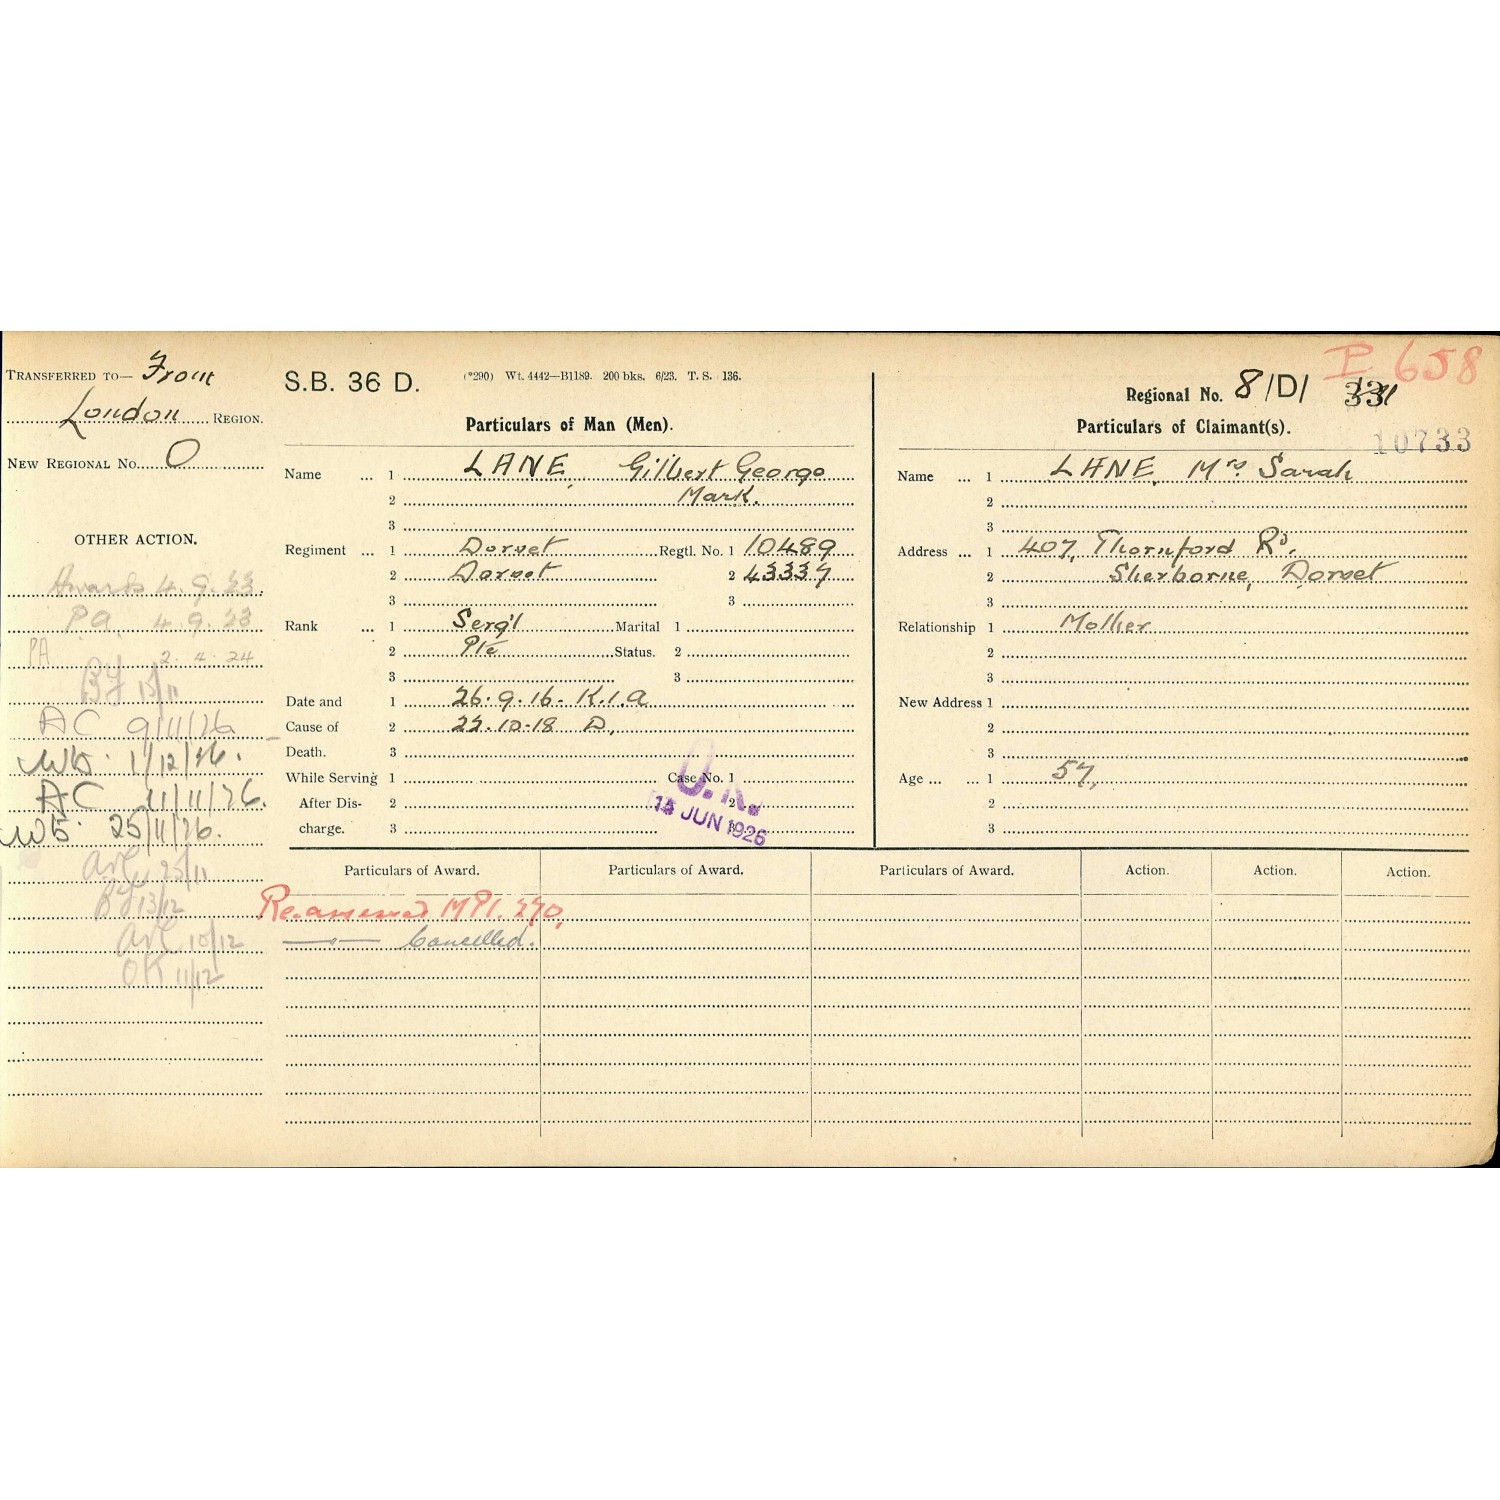 TRANSFERRED TO— From
London REGION.
NEW REGIONAL NO. O
OTHER ACTION.
Awards 4.9.23.
PA. 4.9.23
PA 2.4.24
BF 15/11
AC 9/11/26
1/12/26.
AC 11/11/26.
25/11/26.
25/11
BF 13/12
10/12
OK 11/12
S.B. 36 D. (*290) Wt. 4442—B1189. 200 bks. 6/23. T. S. 136.
Particulars of Man (Men).
Name ... 1 LANE, Gilbert George
2 Mark.
3
Regiment ... 1 Dorset Regtl. No. 1 10489
2 Dorset 2 43337
3 3
Rank ... 1 Serg't Marital 1
2 Pte Status. 2
3 3
Date and 1 26.9.16. K.I.A
Cause of 2 27.10.18 D.
Death. 3
While Serving 1 Case No. 1
After Dis- 2 2
charge. 3 3
O.K.
15 JUN 1926
I 658
Regional No. 8/D/
Particulars of Claimant(s).
10733
Name ... 1 LANE, Mrs. Sarah
2
3
Address ... 1 407, Thornford Rd.
2 Sherborne, Dorset
3
Relationship 1 Mother
2
3
New Address 1
2
3
Age ... ... 1 57,
2
3
Particulars of Award. Particulars of Award. Particulars of Award. Action. Action. Action.
Re-assessed MPI. 270,
—"— Cancelled.